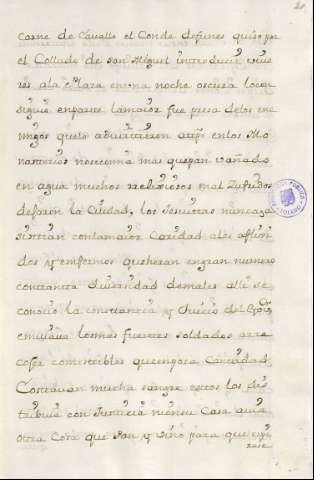 carne de Cavallo el Conde de funes quiso por
el Collado de san Miguel introducir vive
res a la Plaza en una noche oscura locon
siguio en parte la maior fue presa de los ene
migos que lo advirtieron en los Mo
nasterios no se comia mas que pan vañado
en agua muchos relixiosos mal Zufridos
dejaron la Ciudad, los Jesuitas nunca
sistian con la maior Caridad a los afligi
dos y enfermos que heran en gran numero
con tanta diversidad de males alli se
conocio la constancia y Juicio del
embiava los mas fuertes soldados a
cojer comestibles que en gran Cantidad
Costavan mucha sangre estos los dis
tribuia con Justicia ni en su Casa avia
otra Cosa que Pan y vino para que